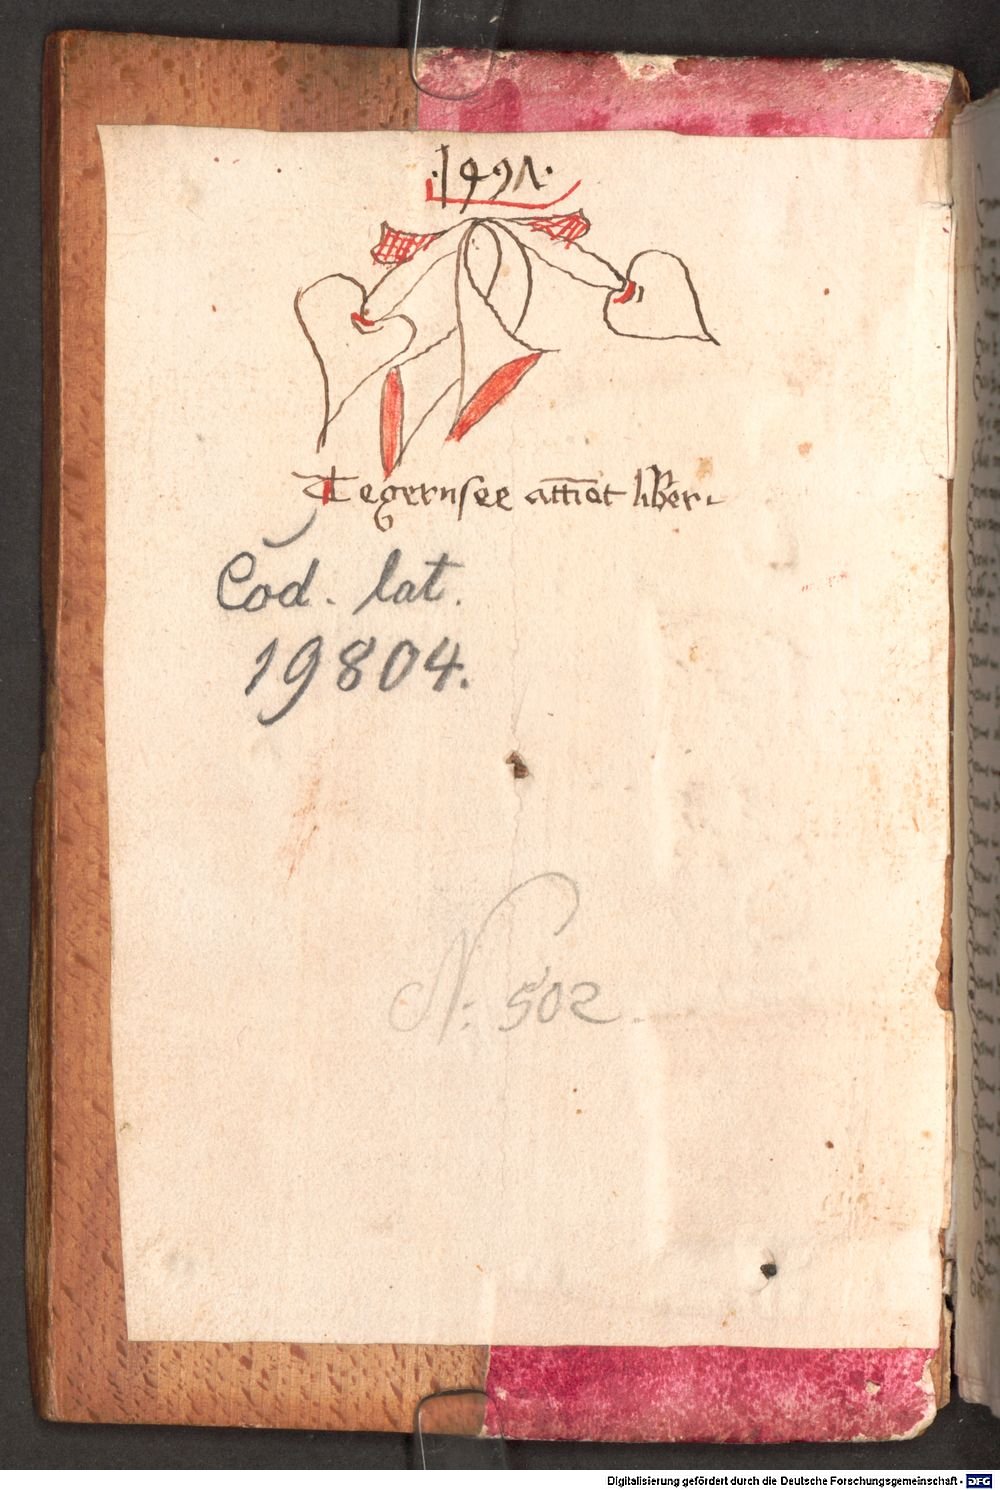 ·1497·
Tegernsee attīet liber.
Cod. lat.
19804.
N: 502.
Digitalisierung gefördert durch die Deutsche Forschungsgemeinschaft - DFG